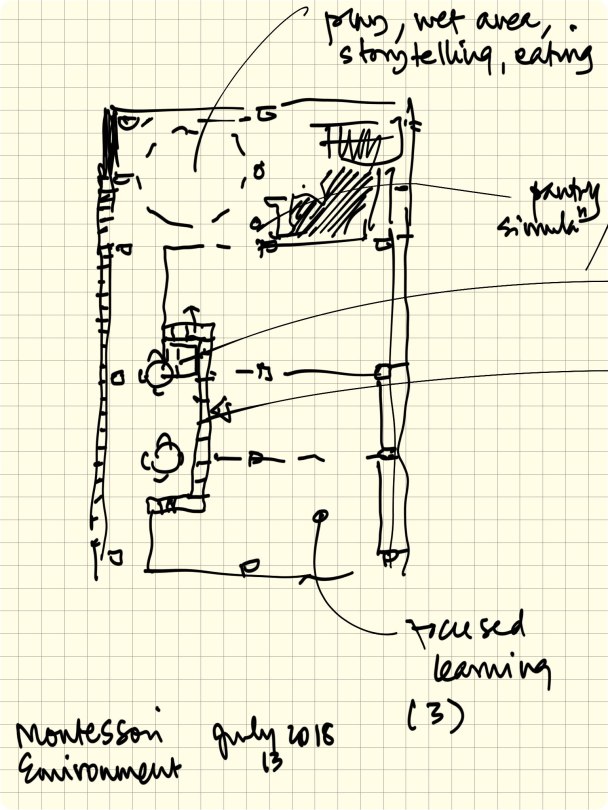 play, wet area,
storytelling, eating
pantry
simulaⁿ
focused
learning
(3)
Montessori July 2018
Environment 13